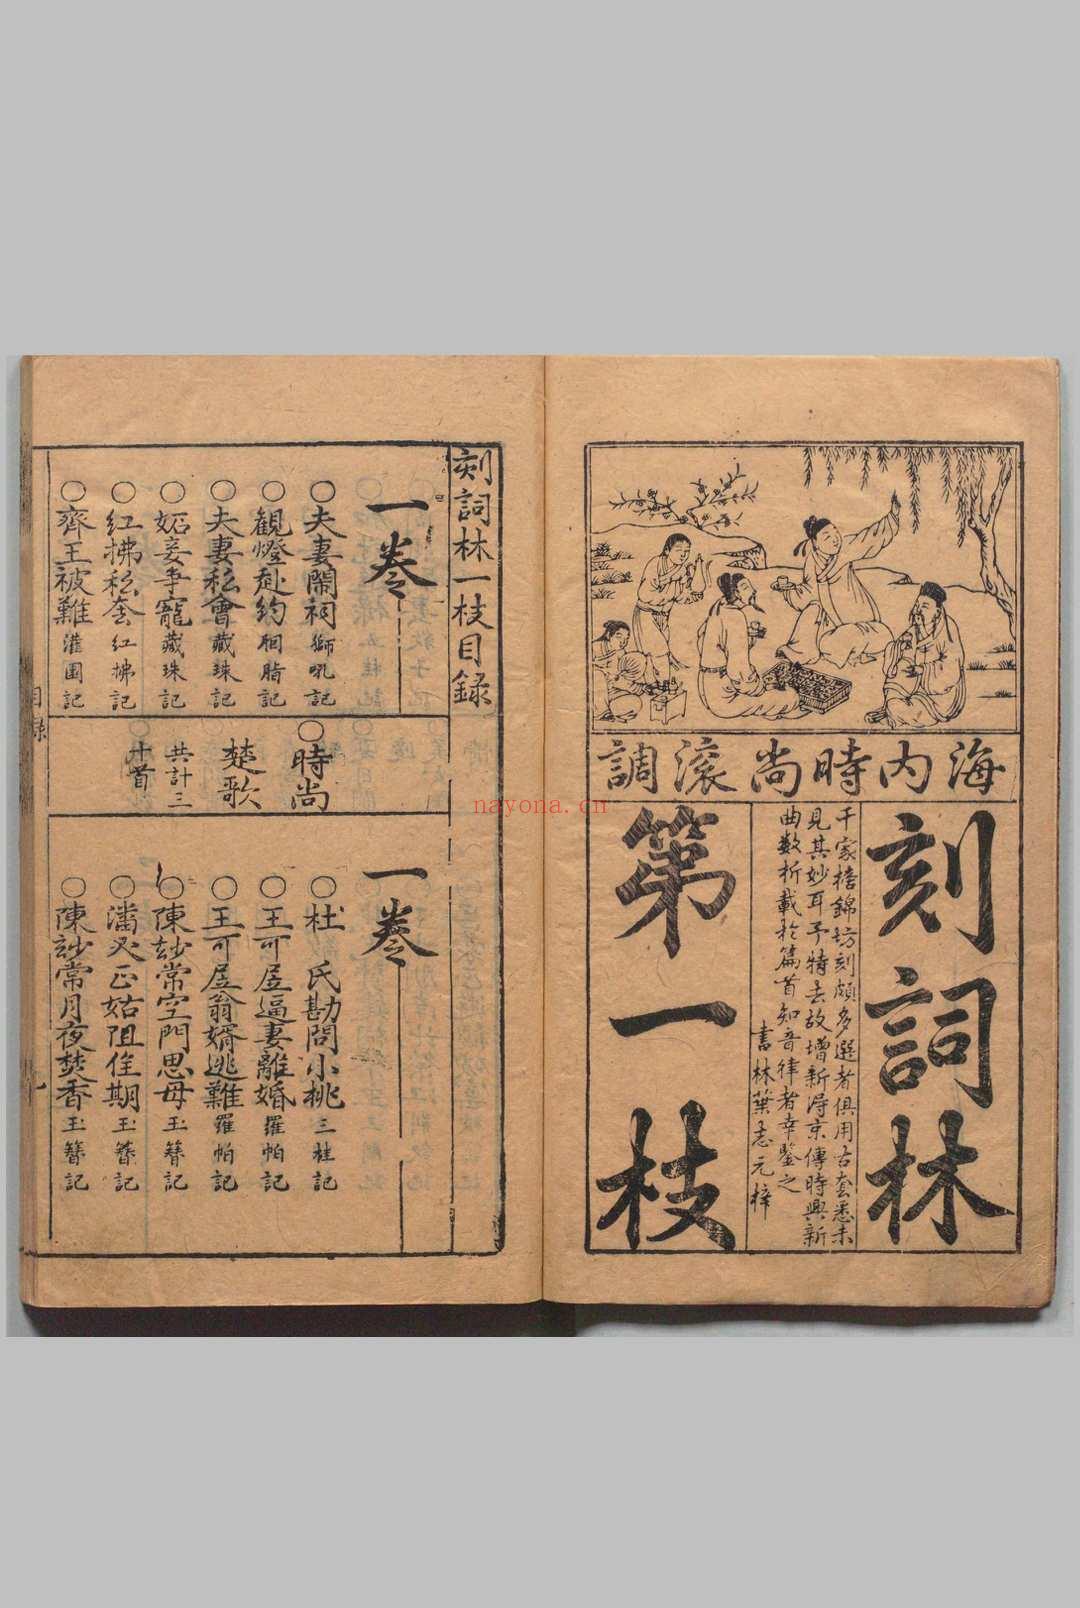 海內時尚滾調
刻詞林
千家摛錦坊刻頗多選者俱用古套悉未
見其妙耳予特去故增新淂京傳時興新
曲数折載扵篇首知音律者幸鑒之
書林葉志元梓
第一枝
刻詞林一枝目錄
一卷
○夫妻閙祠 獅吼記
○観燈赴約 胭脂記
○夫妻私會 藏珠記
○妬妾争寵 藏珠記
○紅拂私奔 紅拂記
○齊王被難 灌園記
○時尚
楚歌
共計三
十首
一卷
○杜氏勘問小桃 三桂記
○王可居逼妻離婚 羅帕記
○王可居翁婿逃難 羅帕記
○陳妙常空門思母 玉簪記
○潘必正姑阻佳期 玉簪記
○陳妙常月夜焚香 玉簪記
目錄
nayona.cn